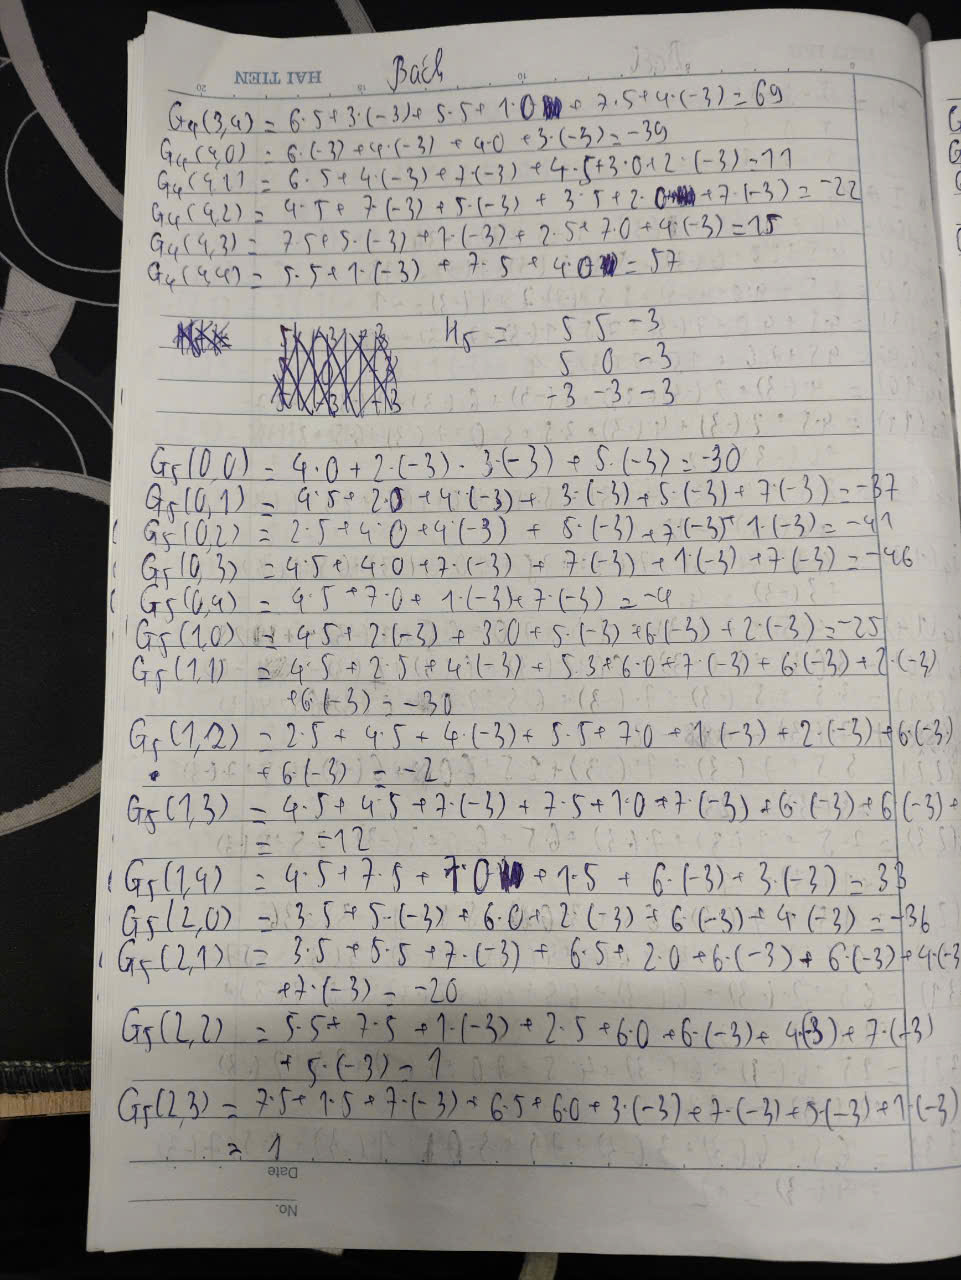 HAI TIEN
Bách
G4(3,4) = 6.5+3.(-3)+ 5.5+ 1.0 + 7.5+4.(-3)=69
G4(4,0) = 6.(-3) +4.(-3) + 4.0 +3.(-3)=-39
G4(4,1) = 6.5+ 4.(-3) +7.(-3) +4.5+3.0+2.(-3)=11
G4(4,2) = 4.5+ 7(-3) +5.(-3) + 3.5+2.0 +7.(-3) = -22
G4(4,3) = 7.5+5.(-3)+1.(-3)+ 2.5+ 7.0 +4.(-3)=15
G4(4,4) = 5.5+1.(-3) + 7.5 +4.0 = 57
H5 = 5 5 -3
5 0 -3
-3 -3 -3
G5(0,0) = 4.0+2.(-3) . 3.(-3) + 5.(-3)=-30
G5(0,1) = 4.5+2.0 +4.(-3)+ 3.(-3)+5.(-3)+7.(-3)=-37
G5(0,2) = 2.5+4.0+4.(-3) + 5.(-3)+7.(-3)+1.(-3)=-41
G5(0,3) = 4.5+ 4.0 +7.(-3) + 7.(-3)+1.(-3)+7.(-3)=-46
G5(0,4) = 4.5 +7.0+ 1.(-3)+7.(-3) =-4
G5(1,0) = 4.5+2.(-3) + 3.0+5.(-3)+6.(-3)+2.(-3)=-25
G5(1,1) = 4.5+2.5+4.(-3)+ 5.3+6.0+7.(-3)+6.(-3)+2.(-3)
+6.(-3)=-30
G5(1,2) = 2.5+ 4.5+4.(-3)+ 5.5+7.0+1.(-3)+2.(-3)+6.(-3)
+6.(-3) = -2
G5(1,3) = 4.5+4.5+7.(-3)+7.5+1.0+7.(-3)+6.(-3)+6(-3)+
= -12
G5(1,4) = 4.5+7.5+ 7.0 +1.5 + 6.(-3)+3.(-3) = 33
G5(2,0) = 3.5+5.(-3)+6.0+2.(-3)+6.(-3)+4.(-3)=-36
G5(2,1) = 3.5+5.5+7.(-3)+ 6.5+ 2.0+6.(-3)+ 6.(-3)+4.(-3)
+7.(-3)= -20
G5(2,2) = 5.5+7.5+1.(-3)+2.5+6.0+6.(-3)+ 4(-3)+7.(-3)
+5.(-3)= 1
G5(2,3) = 7.5+1.5+7.(-3)+6.5+6.0+3.(-3)+7.(-3)+5.(-3)+1.(-3)
= 1
Date
No.